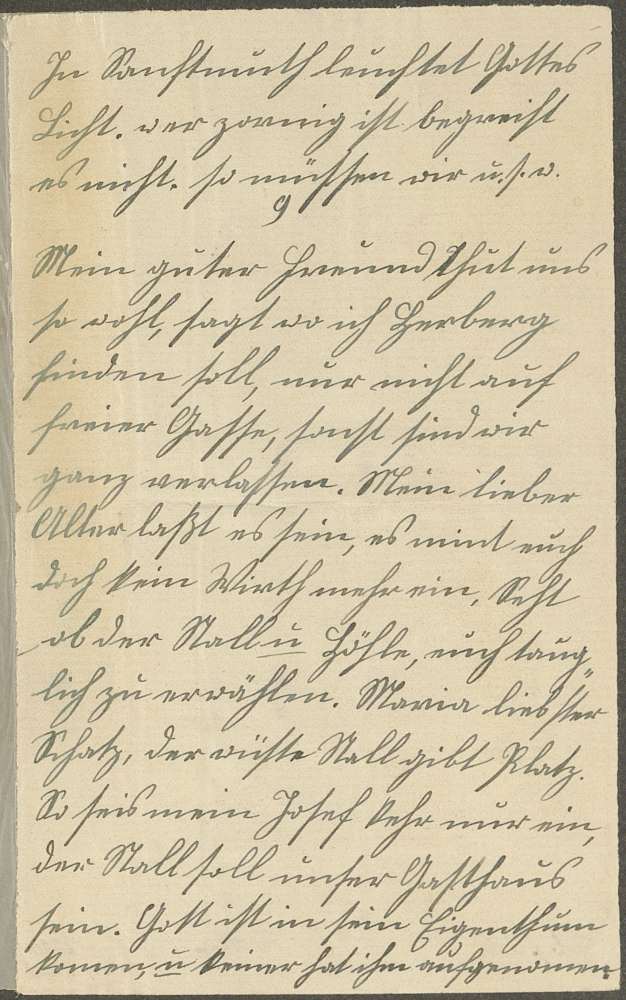 In Sanftmuth leuchtet Gottes
Licht. wer zornig ist begreift
es nicht. so müssen wir u. s. w.
9
Mein guter Freund thut uns
so wohl, sagt wo ich Herberg
finden soll, nur nicht auf
freier Gasse, sonst sind wir
ganz verlassen. Mein lieber
Alter laßt es sein, es nimt euch
doch kein Wirth mehr ein, Seht
ob der Stall u Höhle, euch taug„
lich zu erwählen. Maria liebster
Schatz, der wüste Stall gibt Platz.
So seis mein Josef kehr nur ein,
der Stall soll unser Gasthaus
sein. Gott ist in sein Eigenthum
komen, u keiner hat ihn aufgenomen.